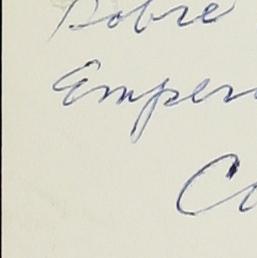 Sobre
Emper
Co